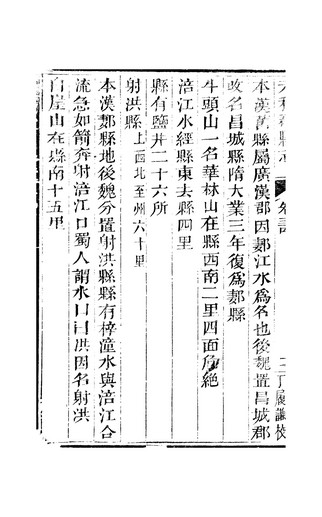 本漢郪縣屬廣漢郡因郪江水爲名也後魏置昌城郡
改名昌城縣隋大業三年復爲郪縣
牛頭山一名華林山在縣西南二里四面危絶
涪江水經縣東去縣四里
縣有鹽井二十六所
射洪縣上西北至州六十里
本漢郪縣地後魏分置射洪縣縣有梓潼水與涪江合
流急如箭奔射涪江口蜀人謂水口曰洪因名射洪
白崖山在縣南十五里